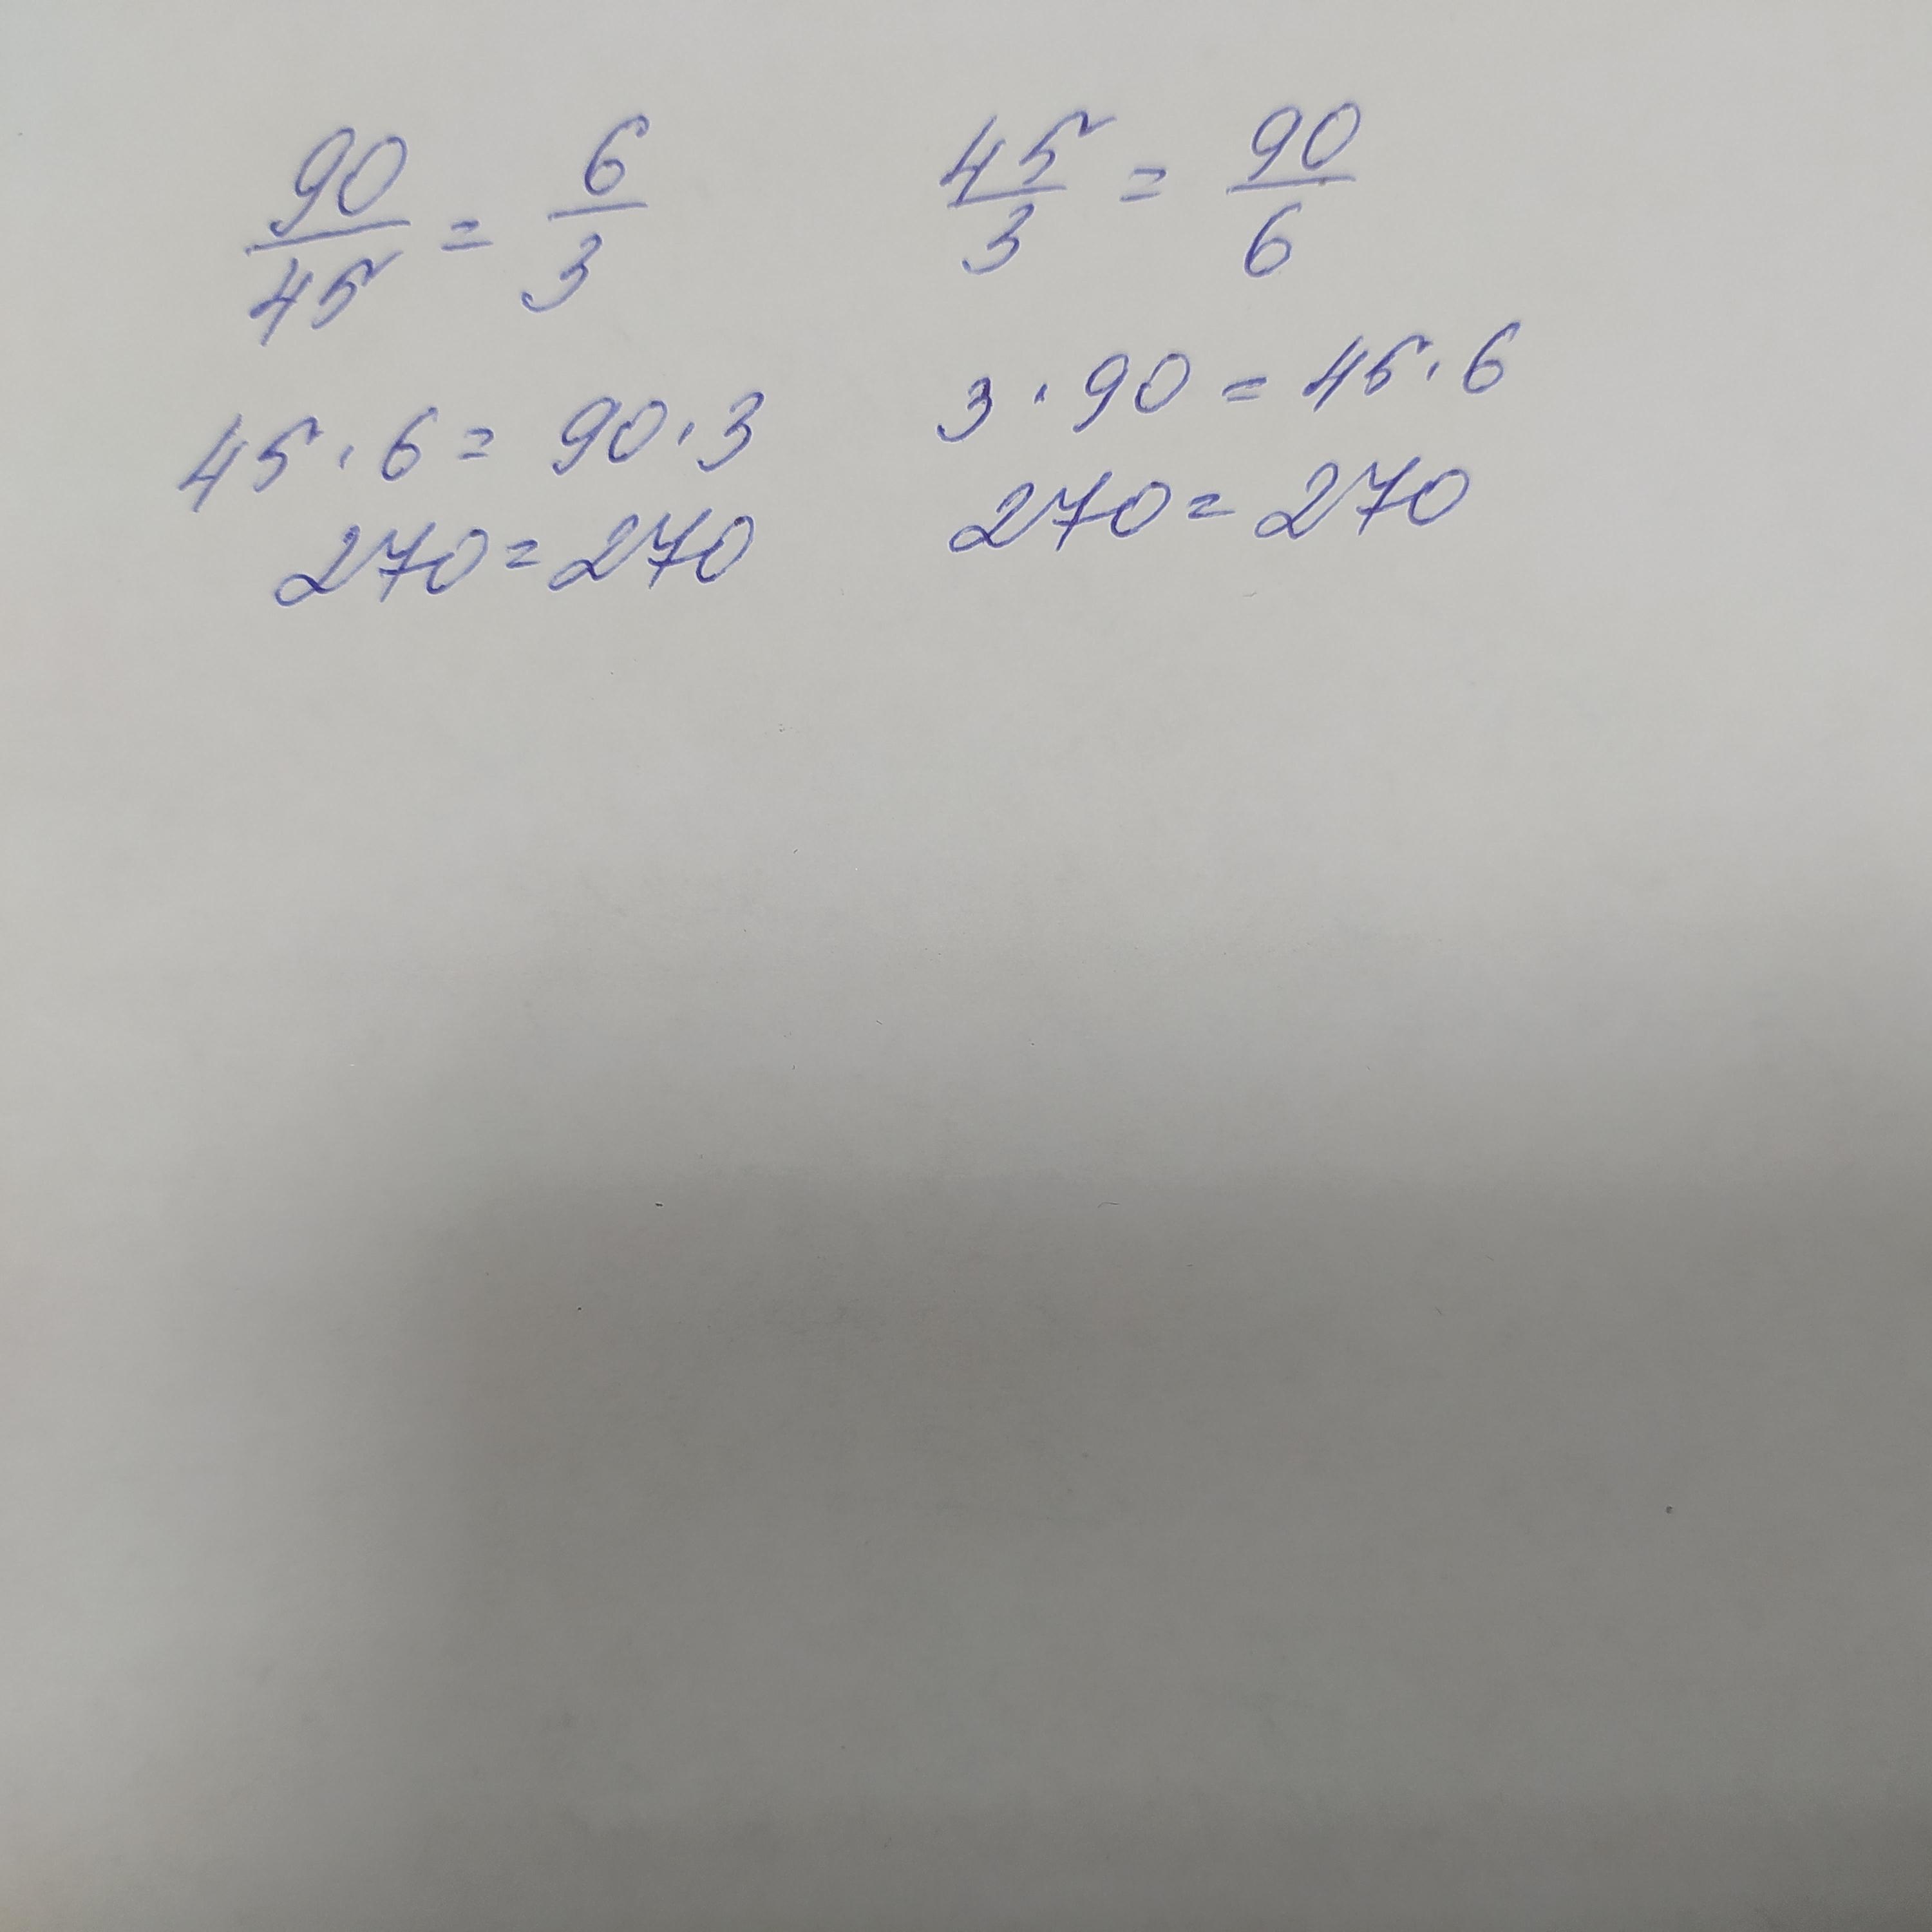 90/45 = 6/3
45 · 6 = 90 · 3
270 = 270
45/3 = 90/6
3 · 90 = 45 · 6
270 = 270